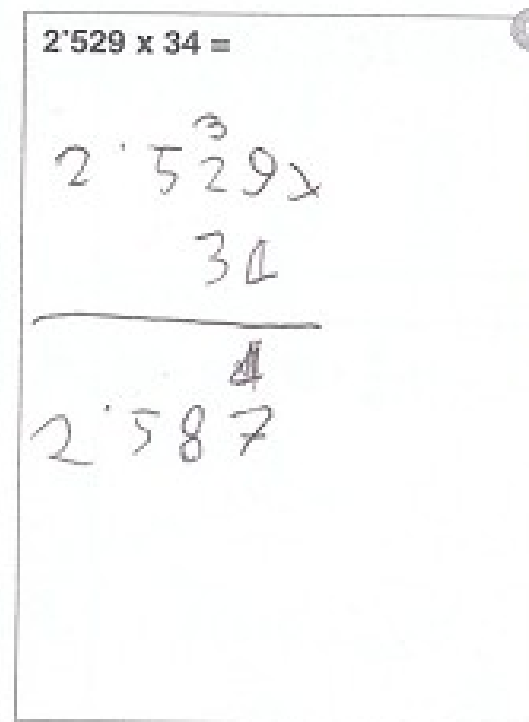 2'529 x 34 =
3
2'529x
34
4
2'587